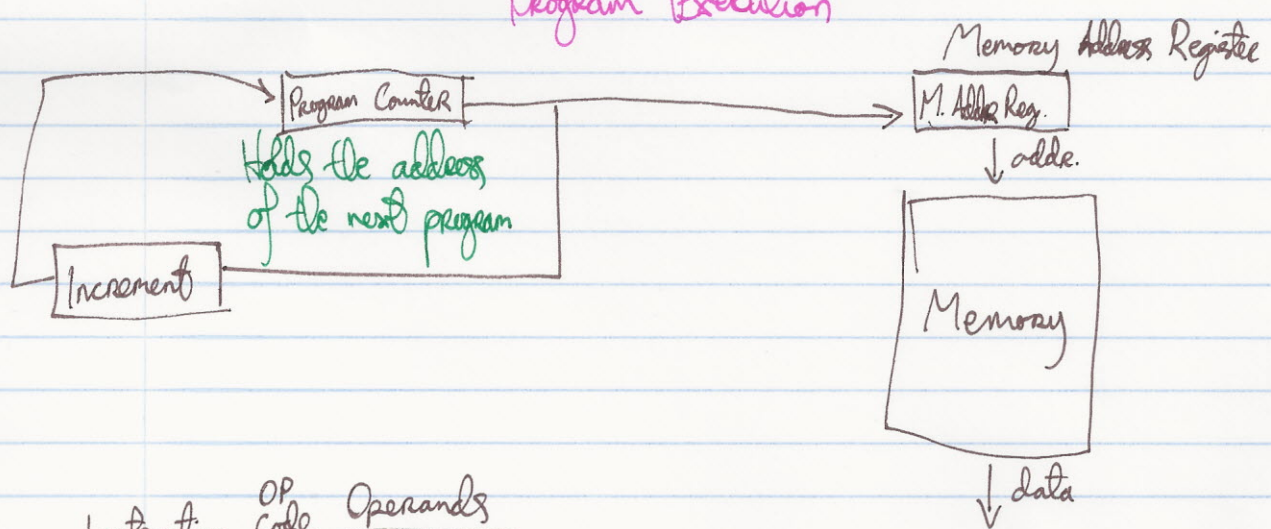 Program Execution
Memory Address Register
Program Counter
M. Addr Reg.
Holds the address
of the next program
addr.
Increment
Memory
data
OP
Code Operands